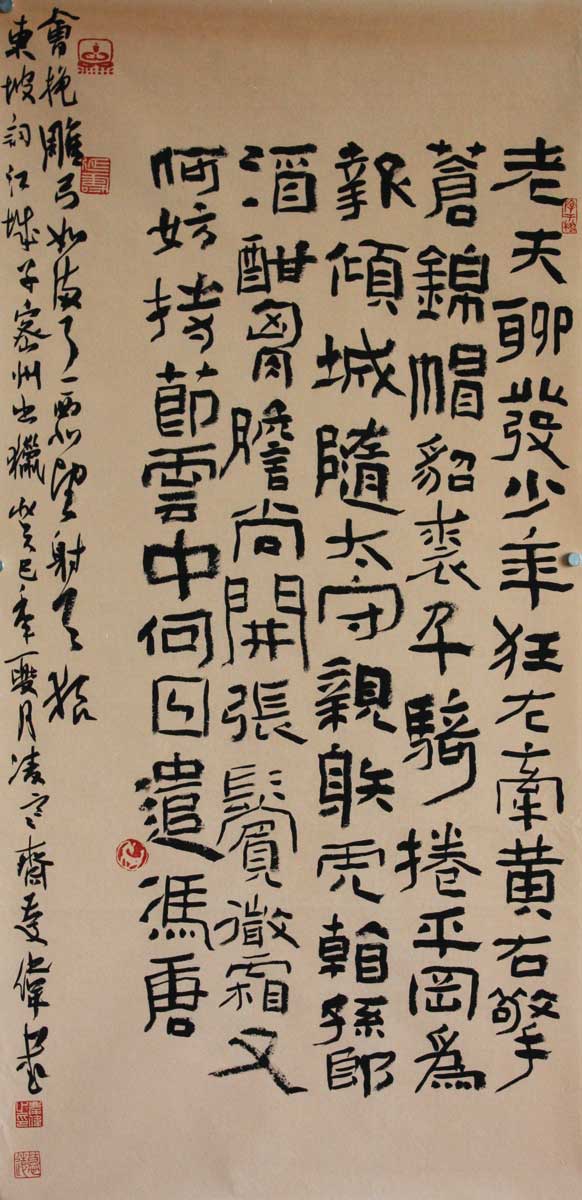 老夫聊發少年狂左牽黄右擎
蒼錦帽貂裘千騎捲平岡為
報傾城隨太守親射虎看孫郎
酒酣胸膽尚開張鬢微霜又
何妨持節雲中何日遣馮唐
會挽雕弓如滿月西北望射天狼
東坡詞江城子密州出獵癸巳年夏月凌寒齋偉書